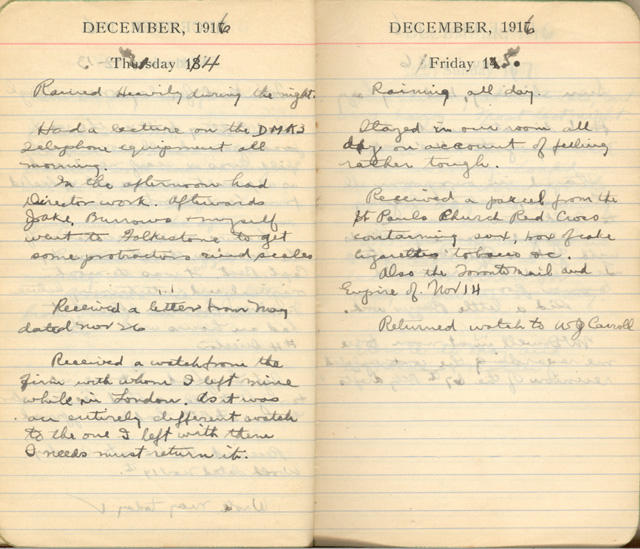 DECEMBER, 1916
Thursday 14
Rained Heavily during the night.
Had a lecture on the D.MK3
Telephone equipment all
morning.
In the afternoon had
Director work. Afterwards
Jake, Burrows & myself
went to Folkestone to get
some protractors and scales
Received a letter from May
dated Nov 26
Received a watch from the
firm with whom I left mine
while in London. As it was
an entirely different watch
to the one I left with them
I needs must return it.
DECEMBER, 1916
Friday 15.
Raining all day.
Stayed in our room all
day on account of feeling
rather tough.
Received a parcel from the
St Pauls Church Red Cross
containing sox, box of cake
cigarettes tobacco &c.
Also the Toronto Mail and
Empire of Nov 14
Returned watch to WJ Carroll